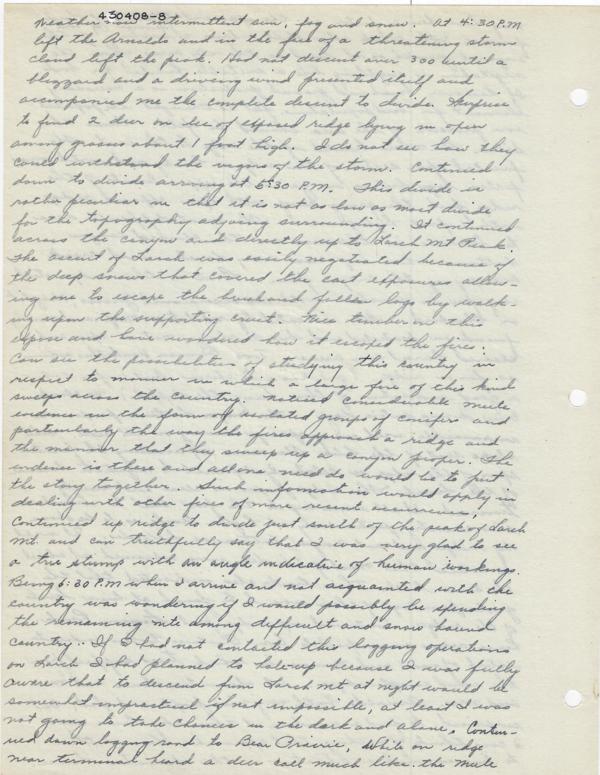 430408-8
Weather now intermittent sun, fog and snow. At 4:30 P.M
left the Arnolds and in the face of a threatening storm
cloud left the peak. Had not descent over 300 until a
blizzard and a driving wind presented itself and
accompanied me the complete descent to divide. Surprise
to find 2 deer on lee of exposed ridge lying in open
among grasses about 1 foot high. I do not see how they
could withstand the vigors of the storm. Continued
down to divide arriving at 5:30 P.M. This divide is
rather peculiar in that it is not as low as most divide
for the topography adjoing surrounding. It continued
across the canyon and directly up to Larch Mt Peak.
The ascent of Larch was easily negotiated because of
the deep snows that covered the east exposures allow-
ing one to escape the brush and fallen logs by walk-
ing upon the supporting crust. Nice timber on this
expose and have wondered how it escaped the fires.
Can see the possibilities of studying this country in
respect to manner in which a large fire of this kind
sweeps across the country. Noticed considerable mute
evidence in the form of isolated groups of conifers and
particularly the way the fires approach a ridge and
the manner that they sweep up a canyon proper. The
evidence is there and all one need do would be to put
the story together. Such information would apply in
dealing with other fires of more recent occurrence.
Continued up ridge to divide just south of the peak of Larch
Mt. and can truthfully say that I was very glad to see
a tree stump with an angle indicative of human workings.
Being 6:30 P.M when I arrive and not acquainted with the
country was wondering if I would possibly be spending
the remaining nite among difficult and snow bound
country. If I had not contacted this logging operations
on Larch I had planned to hole-up because I was fully
aware that to descend from Larch Mt at night would be
somewhat impractical if not impossible, at least I was
not going to take chances in the dark and alone. Contin-
ued down logging road to Bear Prairie. While on ridge
near terminal heard a deer call much like the mule